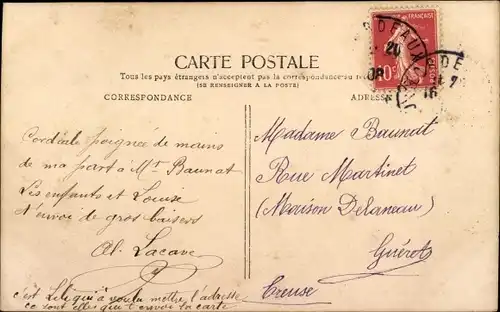 CARTE POSTALE
Tous les pays étrangers n'acceptent pas la correspondance au
(SE RENSEIGNER A LA POSTE)
CORRESPONDANCE
ADRESSE
FRANÇAISE
BORDEAUX
20
16
Cordiale poignée de mains
de ma part à Mr Baunat
Les enfants et Louise
t'envoi de gros baisers
Al. Lacave
c'est Lili qui à voulu mettre l'adresse
ce sont elles qui t'envoi la carte
Madame Baunat
Rue Martinet
(Maison Delaneau)
Guéret
Creuse